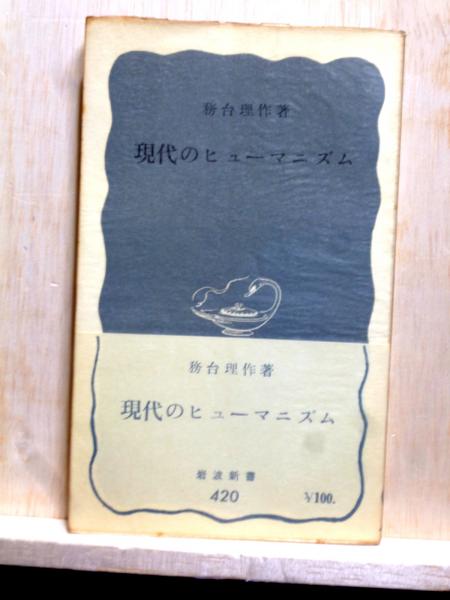 務台理作著
現代のヒューマニズム
務台理作著
現代のヒューマニズム
岩波新書
420 ¥100.